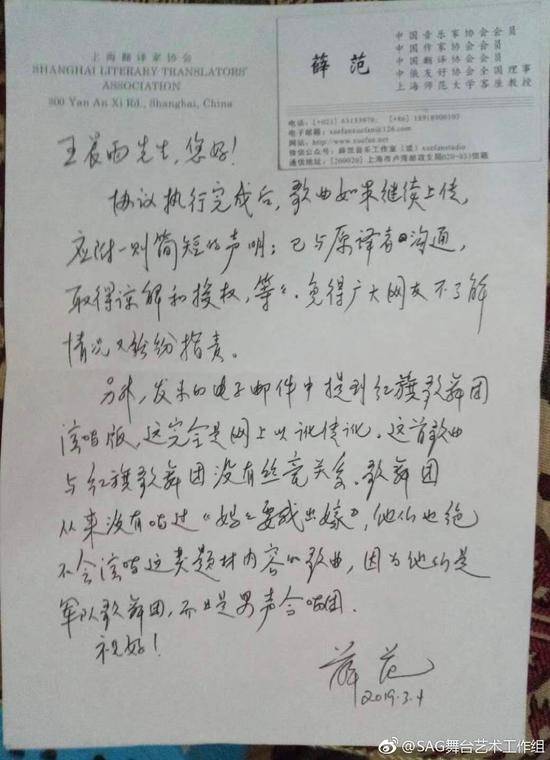 上海翻译家协会
SHANGHAI LITERARY TRANSLATORS'
ASSOCIATION
800 Yan An Xi Rd., Shanghai, China
薛 范
中国音乐家协会会员
中国作家协会会员
中国翻译协会会员
中俄友好协会全国理事
上海师范大学客座教授
电子邮箱：xuefanxuefan@126.com
网站：http://www.xuefan.net
微信公众号：薛范音乐工作室（或）xuefanstudio
通信地址：[200020]上海市卢湾邮政支局020-031信箱
王晨雨先生，您好！
协议执行完成后，歌曲如果继续上传，
应附一则简短的声明：已与原译者沟通，
取得谅解和授权，等等。免得广大网友不了解
情况又纷纷指责。
另外，发来的电子邮件中提到红旗歌舞团
演唱版，这完全是网上以讹传讹。这首歌曲
与红旗歌舞团没有丝毫关系。歌舞团
从来没有唱过《妈妈要我出嫁》，他们也绝
不会演唱这类题材内容的歌曲，因为他们是
军队歌舞团，而且是男声合唱团。
祝好！
薛范
2019.3.4
@SAG舞台艺术工作组